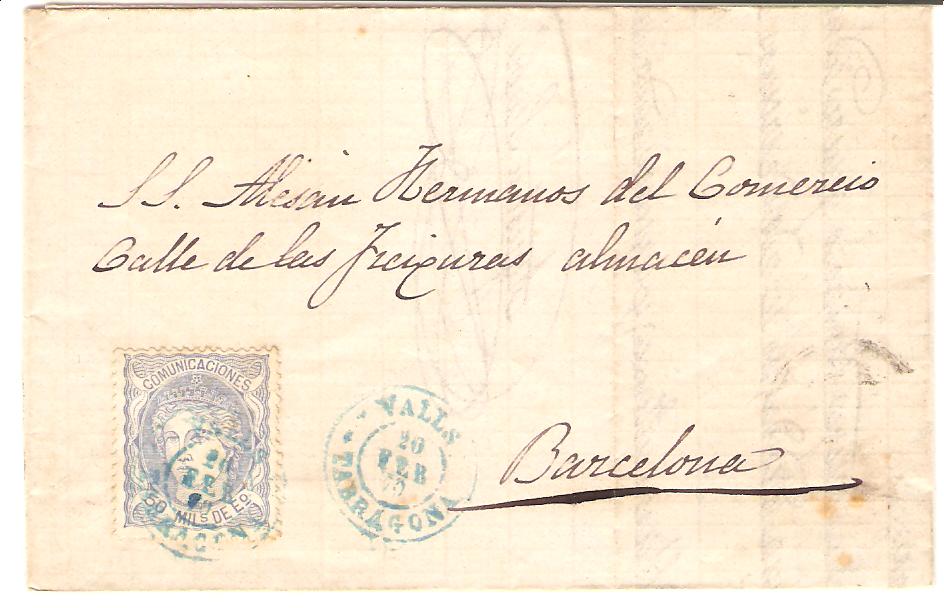 SS. Alesán Hermanos del Comercio
Calle de las Freixuras almacén
COMUNICACIONES
50 MILS DE EO
VALLS
20
FEB
TARRAGONA
Barcelona